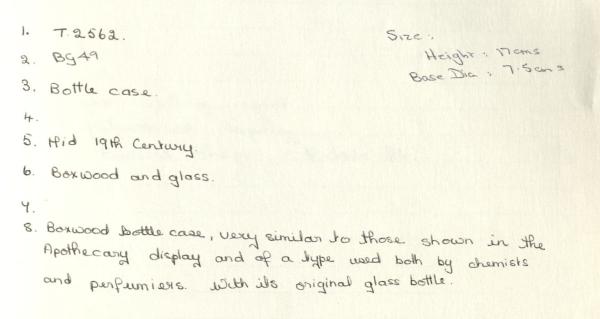 1. T.2562.
Size:
Height: 17cms
Base Dia: 7.5cms
2. BG49
3. Bottle case.
4.
5. Mid 19th Century.
6. Boxwood and glass.
7.
8. Boxwood bottle case, very similar to those shown in the
Apothecary display and of a type used both by chemists
and perfumiers. With its original glass bottle.